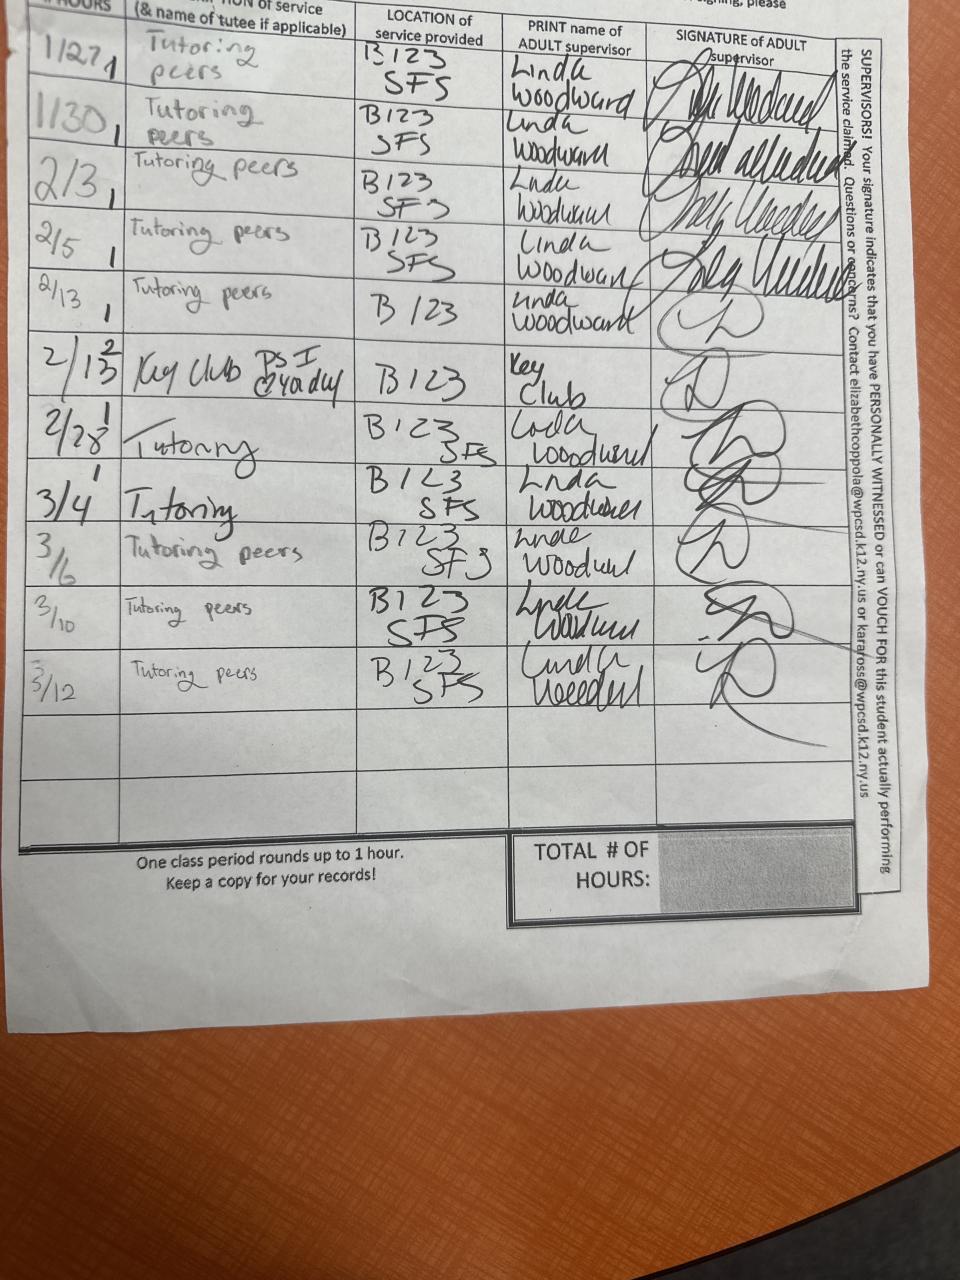 HOURS
of service
signing, please
(& name of tutee if applicable)
LOCATION of
service provided
PRINT name of
ADULT supervisor
SIGNATURE of ADULT
supervisor
1/27, 1
Tutoring
peers
B123
SFS
Linda
Woodward
1/30, 1
Tutoring
peers
B123
SFS
Linda
Woodward
2/3, 1
Tutoring peers
B123
SFS
Linda
Woodward
2/5 1
Tutoring peers
B123
SFS
Linda
Woodward
2/13 1
Tutoring peers
B123
Linda
Woodward
2/13 2
Key Club
B123
Key
Club
2/28 1
Tutoring
B123
SFS
Linda
Woodward
3/4 1
Tutoring
B123
SFS
Linda
Woodward
3/6
Tutoring peers
B123
SFS
Linda
Woodward
3/10
Tutoring peers
B123
SFS
Linda
Woodward
3/12
Tutoring peers
B123
SFS
Linda
Woodward
One class period rounds up to 1 hour.
Keep a copy for your records!
TOTAL # OF
HOURS:
SUPERVISORS! Your signature indicates that you have PERSONALLY WITNESSED or can VOUCH FOR this student actually performing
the service claimed. Questions or concerns? Contact elizabethcoppola@wpcsd.k12.ny.us or karaross@wpcsd.k12.ny.us